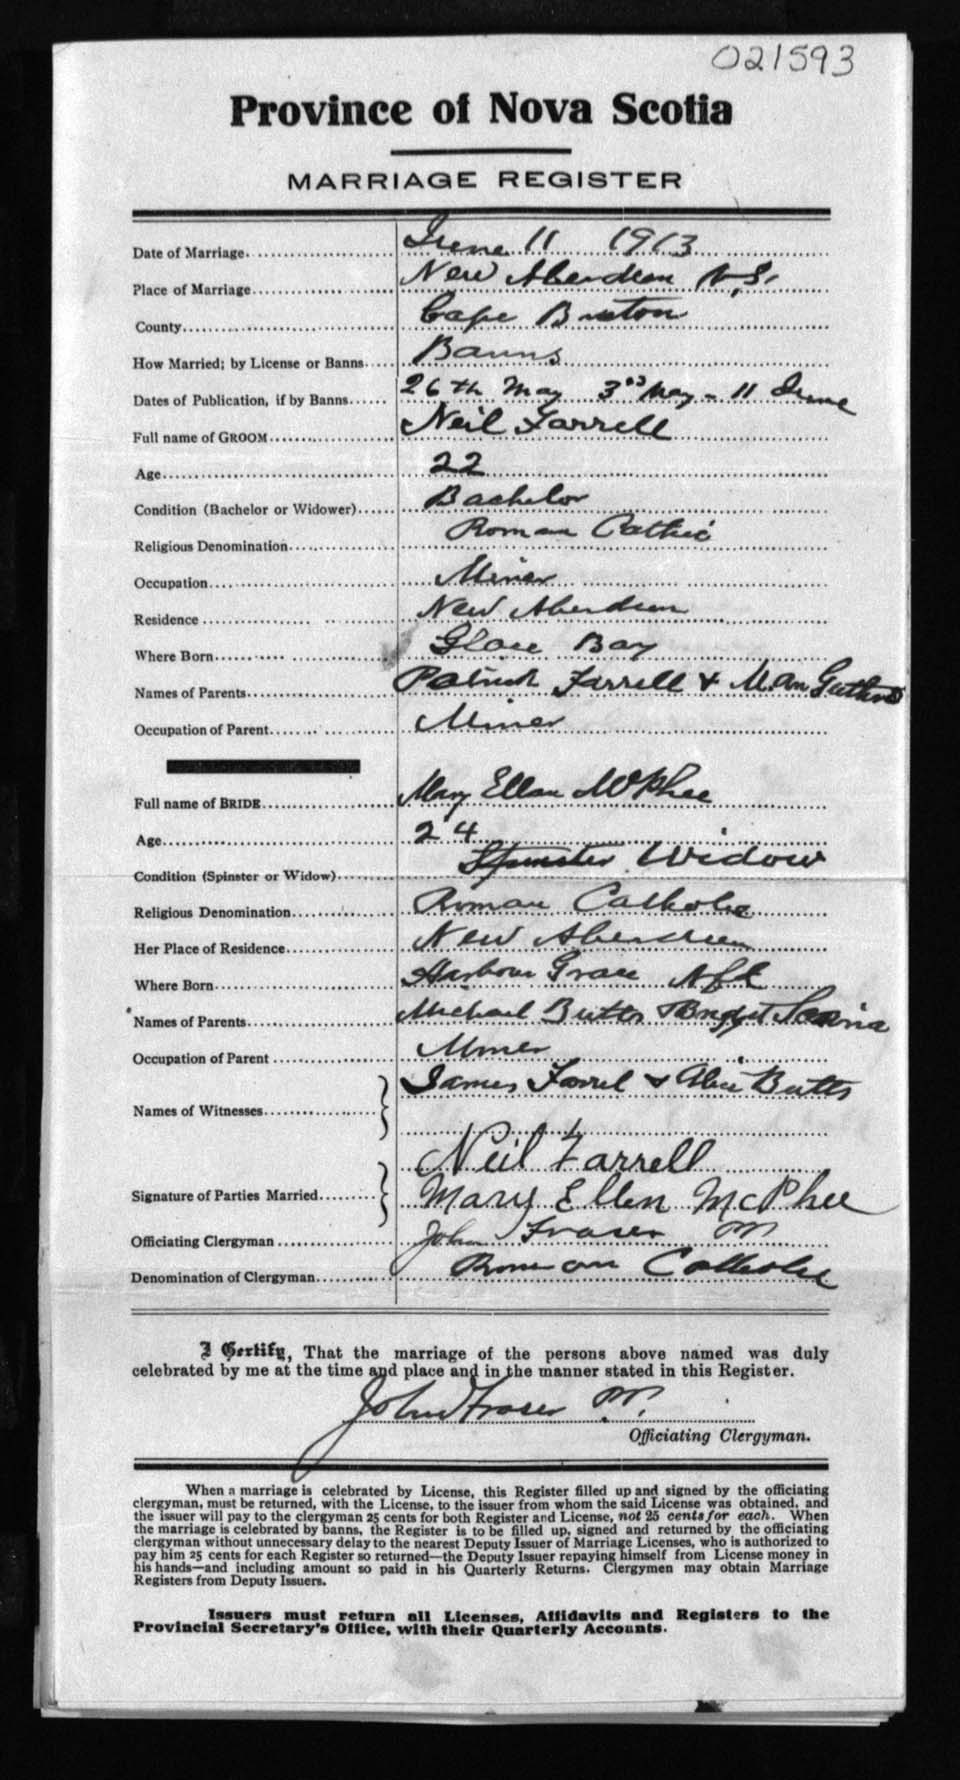 021593
Province of Nova Scotia
MARRIAGE REGISTER
Date of Marriage June 11 1913
Place of Marriage New Aberdeen N.S.
County Cape Breton
How Married; by License or Banns Banns
Dates of Publication, if by Banns 26th May 3rd May - 11 June
Full name of GROOM Neil Farrell
Age 22
Condition (Bachelor or Widower) Bachelor
Religious Denomination Roman Cathic
Occupation Miner
Residence New Aberdeen
Where Born Glace Bay
Names of Parents Patrick Farrell & M. An
Occupation of Parent Miner
Full name of BRIDE Mary Ellen McPhee
Age 24
Condition (Spinster or Widow) Spinster Widow
Religious Denomination Roman Catholic
Her Place of Residence New Aberdeen
Where Born Harbour Grace Nfl
Names of Parents Michael Butts & Bridget
Occupation of Parent Miner
Names of Witnesses James Farrel & Alice Butts
Neil Farrell
Signature of Parties Married Mary Ellen McPhee
Officiating Clergyman John Fraser
Denomination of Clergyman Roman Catholic
I Certify, That the marriage of the persons above named was duly
celebrated by me at the time and place and in the manner stated in this Register.
John Fraser
Officiating Clergyman.
When a marriage is celebrated by License, this Register filled up and signed by the officiating
clergyman, must be returned, with the License, to the issuer from whom the said License was obtained, and
the issuer will pay to the clergyman 25 cents for both Register and License, not 25 cents for each. When
the marriage is celebrated by banns, the Register is to be filled up, signed and returned by the officiating
clergyman without unnecessary delay to the nearest Deputy Issuer of Marriage Licenses, who is authorized to
pay him 25 cents for each Register so returned—the Deputy Issuer repaying himself from License money in
his hands—and including amount so paid in his Quarterly Returns. Clergymen may obtain Marriage
Registers from Deputy Issuers.
Issuers must return all Licenses, Affidavits and Registers to the
Provincial Secretary's Office, with their Quarterly Accounts.